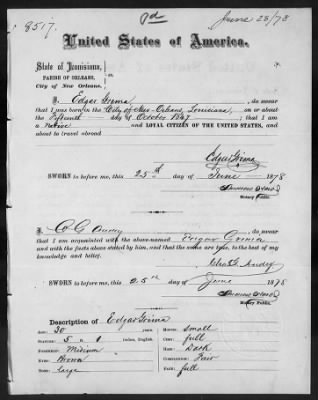 8517.
June 28/78
United States of America.
State of Louisiana,
PARISH OF ORLEANS,
City of New Orleans.
I, Edgar Grima, do swear
that I was born in the City of New-Orleans, Louisiana, on or about
the Fifteenth day of October 1847 that I am a
Native and LOYAL CITIZEN OF THE UNITED STATES, and
about to travel abroad
Edgar Grima
SWORN to before me, this 25th day of June 1878
Notary Public.
I, do swear
that I am acquainted with the above-named Edgar Grima
and with the facts above stated by him, and that the same are true, to the best of my
knowledge and belief.
SWORN to before me, this 25th day of June 1878
Notary Public.
Description of Edgar Grima
Age: 30 years
Stature: 5 1 inches, English
Forehead: Medium
Eyes: Brown
Nose: large
Mouth: small
Chin: full
Hair: Dark
Complexion: Fair
Face: full